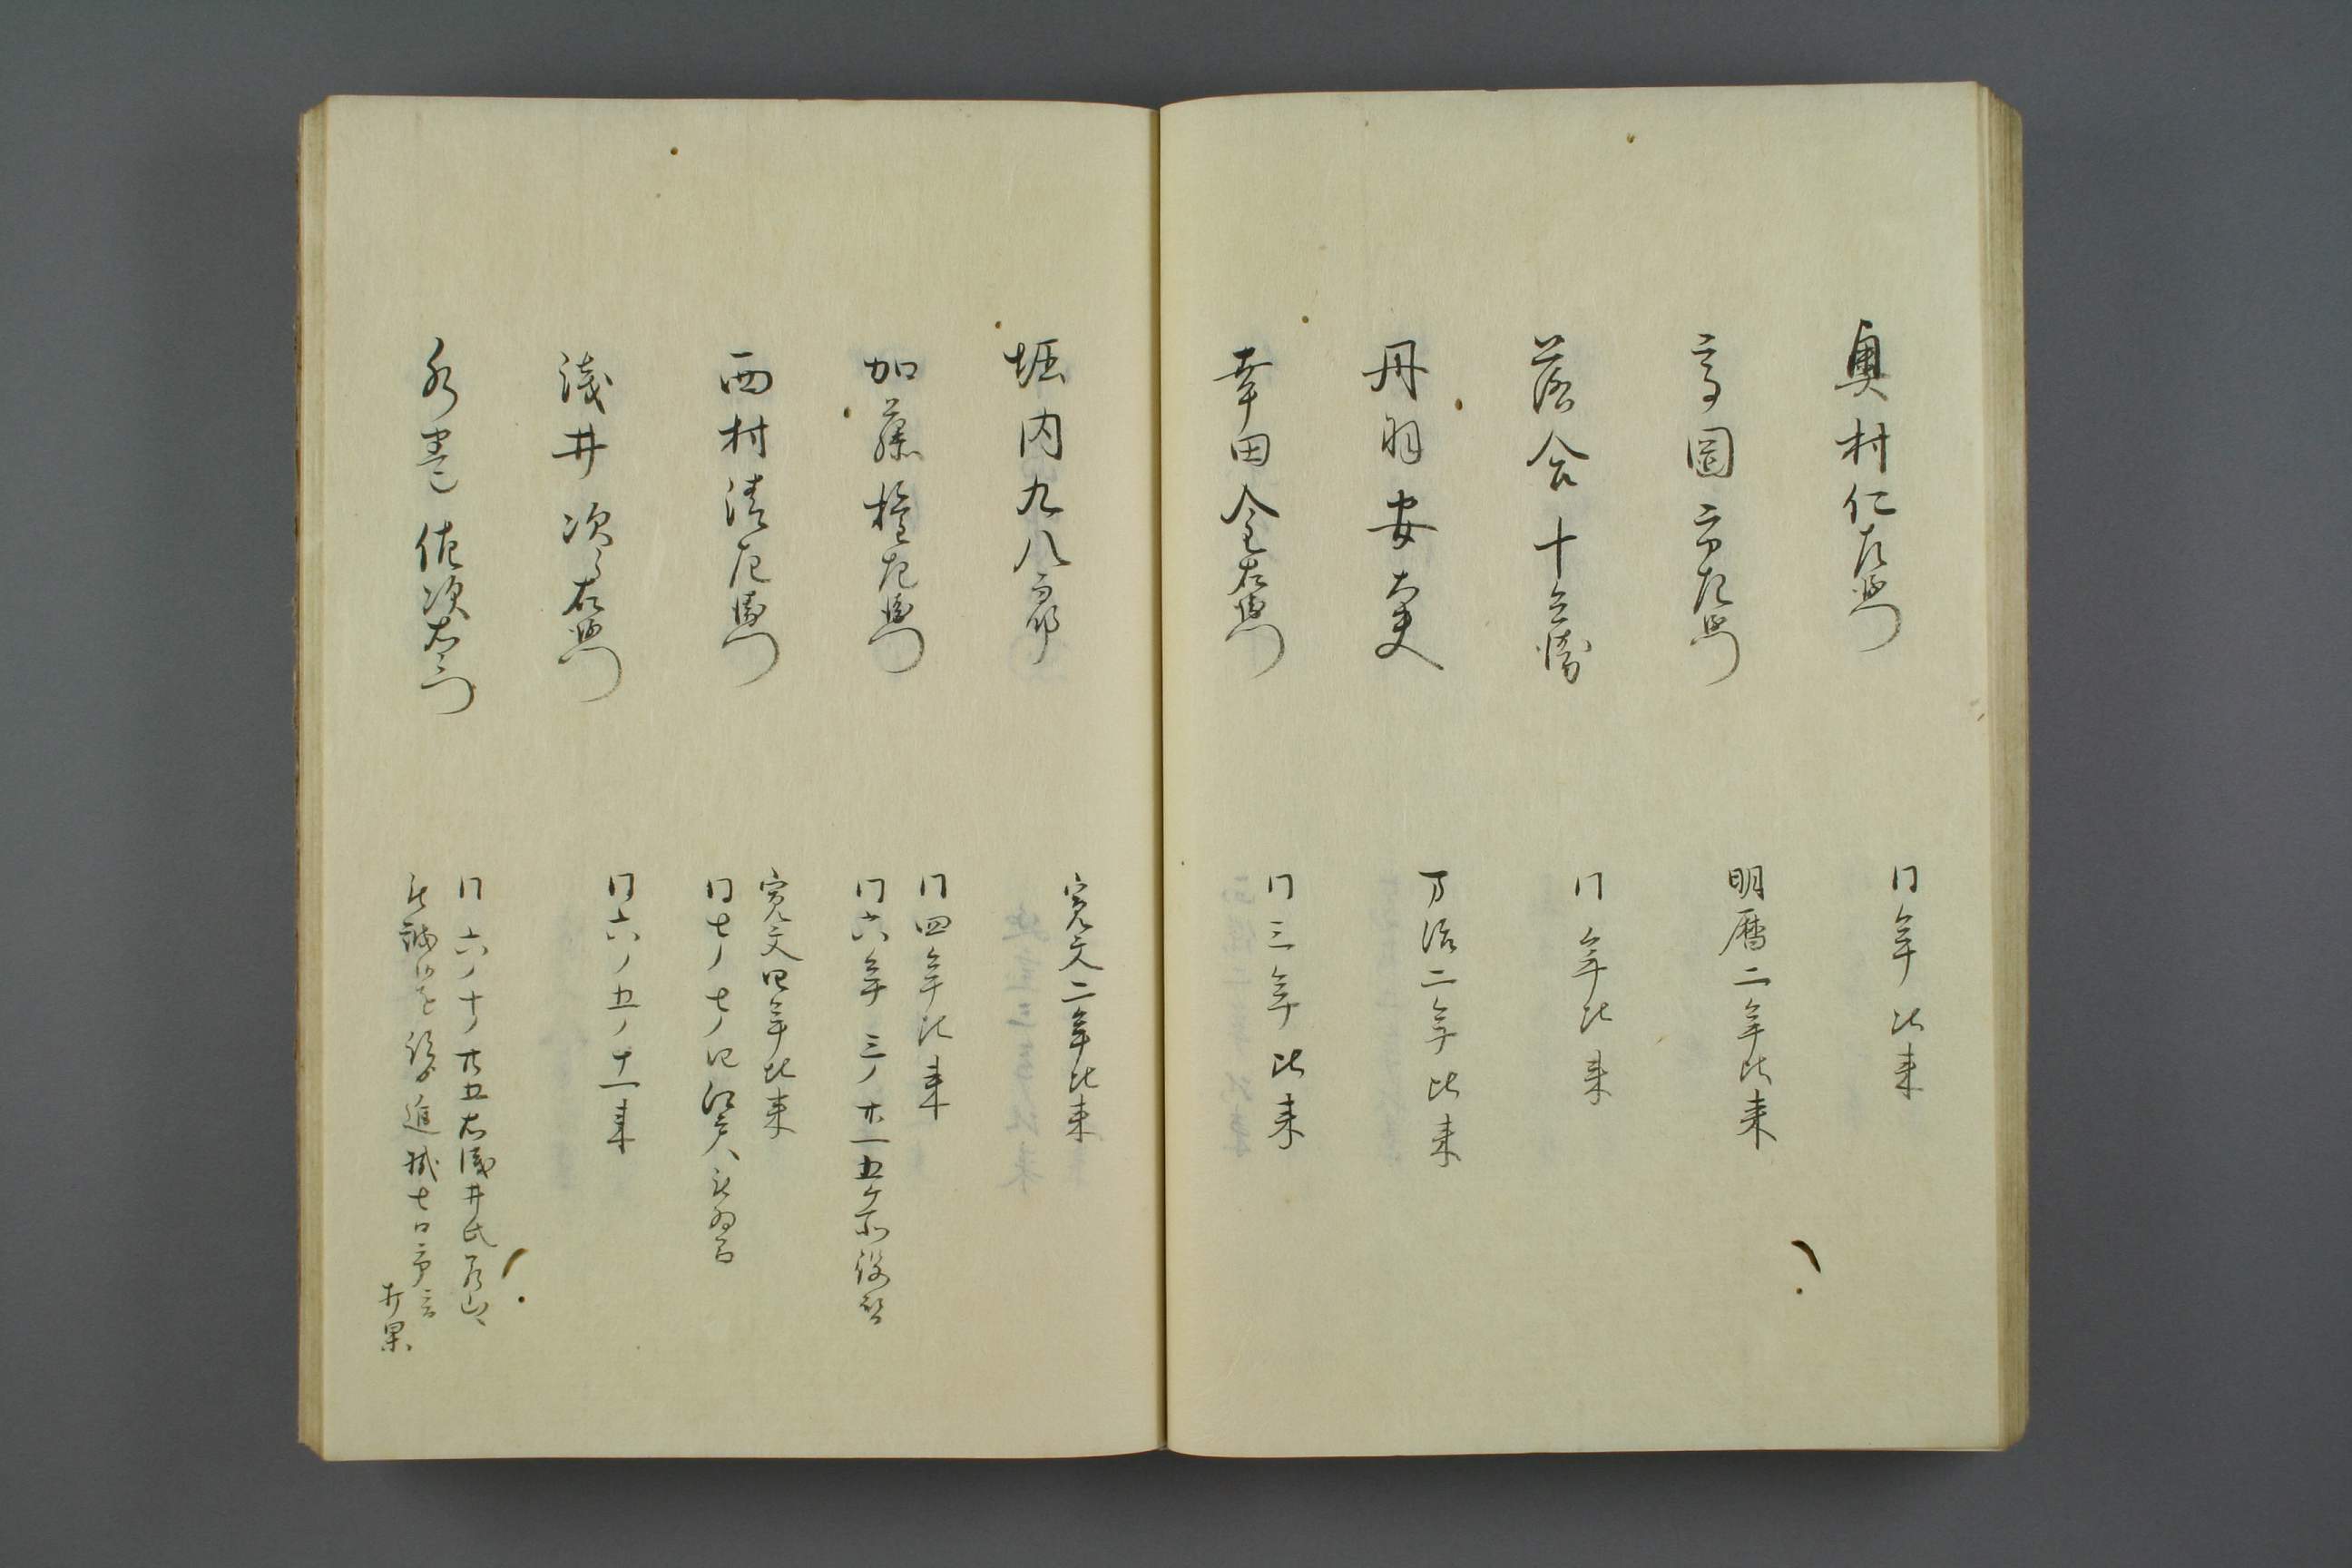 奥村仁左衛門
同年比来
高岡市左衛門
明暦二年比来
落合十兵衛
同年比来
丹羽安太夫
万治二年比来
幸田金右衛門
同三年比来
堀内九八郎
寛文二年比来
加藤権左衛門
同四年比来
同六年三ノ廿一五
西村清左衛門
寛文四年比来
同七ノ七ノ江戸
浅井次右衛門
同六ノ五ノ十一来
佐次右衛門
同六ノ十ノ廿五右浅井氏
打果